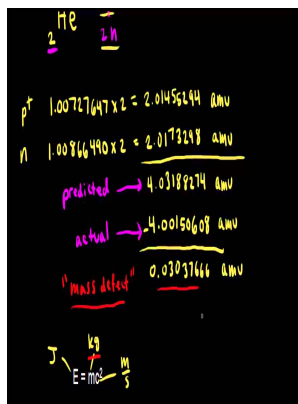 He
2 2n
p+ 1.00727647x2 = 2.01455294 amu
n 1.00866490x2 = 2.0173298 amu
predicted → 4.03188274 amu
actual → -4.00150608 amu
"mass defect" 0.03037666 amu
kg
J m
E = mc² s